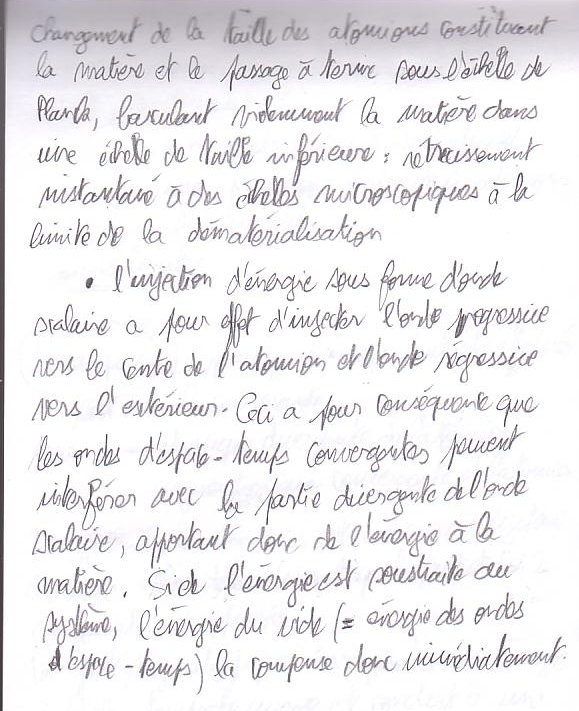 changement de la taille des atomions constituant
la matière et le passage à terme sous l'échelle de
Planck, basculant videmment la matière dans
une échelle de taille inférieure : rétrécissement
instantané à des échelles microscopiques à la
limite de la dématérialisation
• l'injection d'énergie sous forme d'onde
scalaire a pour effet d'injecter l'onde progressive
vers le centre de l'atomion et l'onde régressive
vers l'extérieur. Ceci a pour conséquence que
les ondes d'espace-temps convergentes peuvent
interférer avec la partie divergente de l'onde
scalaire, apportant donc de l'énergie à la
matière. Si de l'énergie est soustraite au
système, l'énergie du vide (= énergie des ondes
d'espace-temps) la compense donc immédiatement.